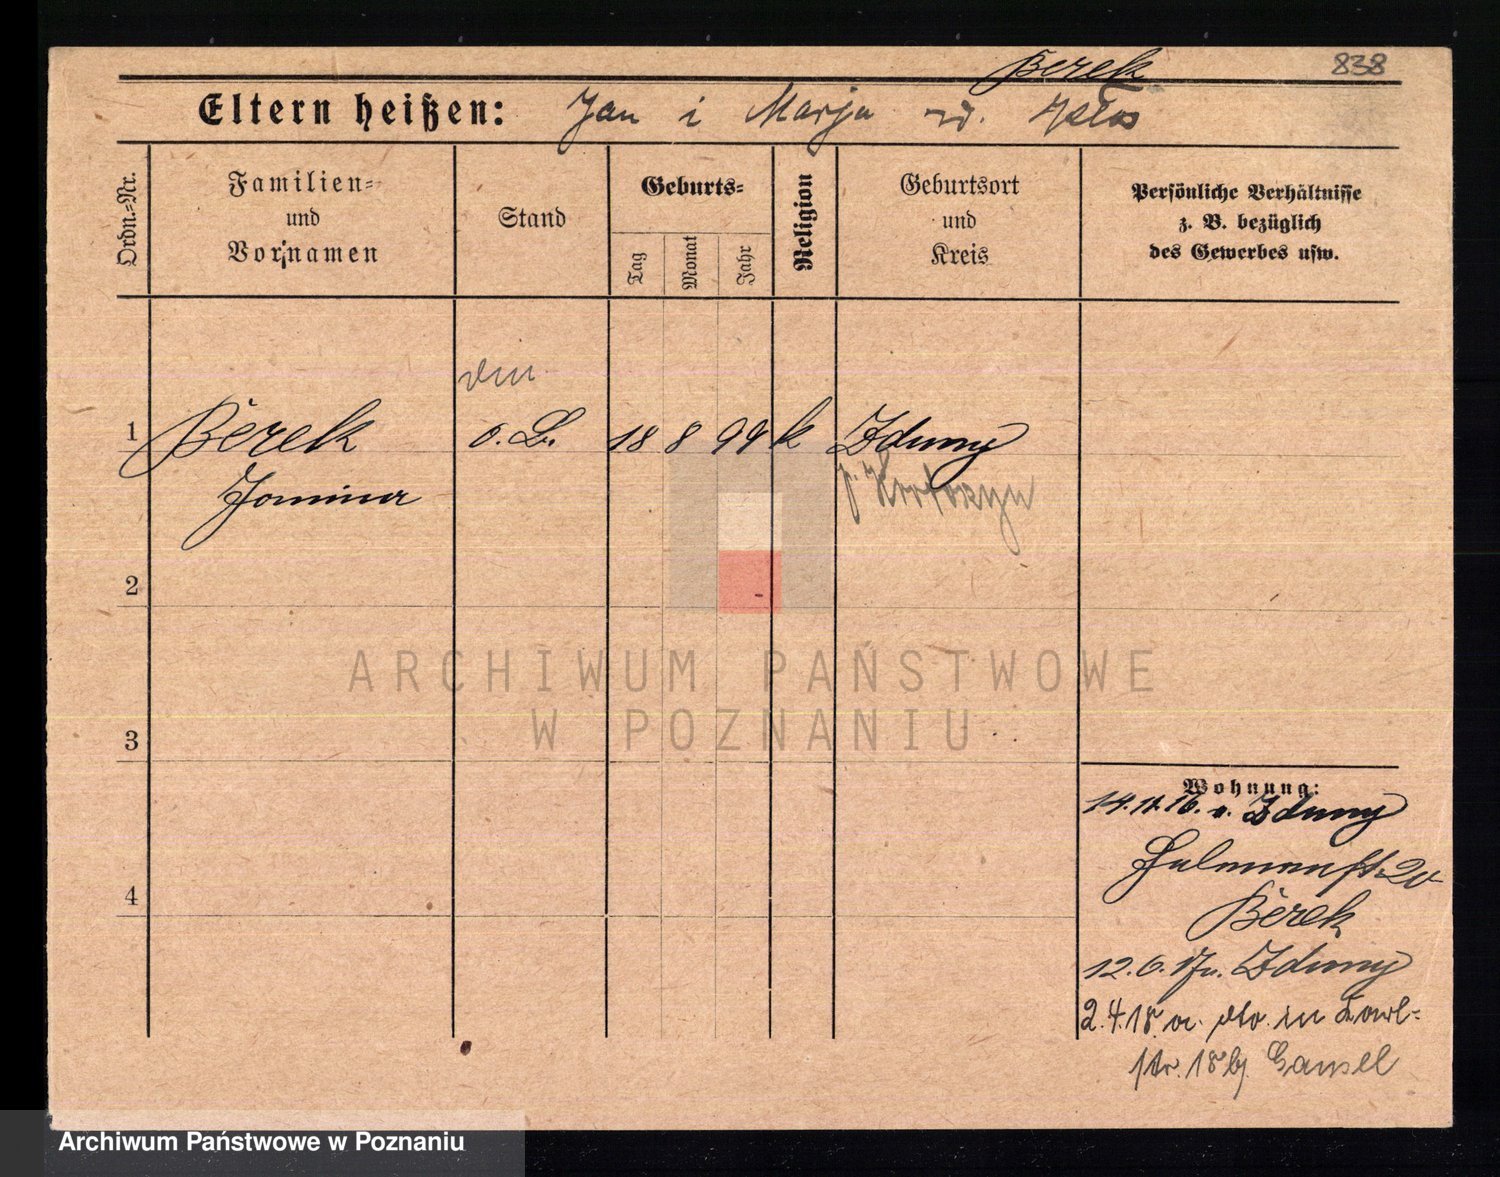 838
Berek
Eltern heißen: Jan i Marja
Ordn.=Nr.
Familien=
und
Vornamen
Stand
Geburts=
Tag
Monat
Jahr
Religion
Geburtsort
und
Kreis
Persönliche Verhältnisse
z. B. bezüglich
des Gewerbes usw.
1
Berek
o. B.
18
8
99
k
Zduny
Janina
p. Krotoszyn
2
3
4
ARCHIWUM PAŃSTWOWE
W POZNANIU
Wohnung:
14.11.16. v. Zduny
Berek
12.6.17 n. Zduny
2.4.18 a. dto. in Karl=
str. 18 bj.
Archiwum Państwowe w Poznaniu